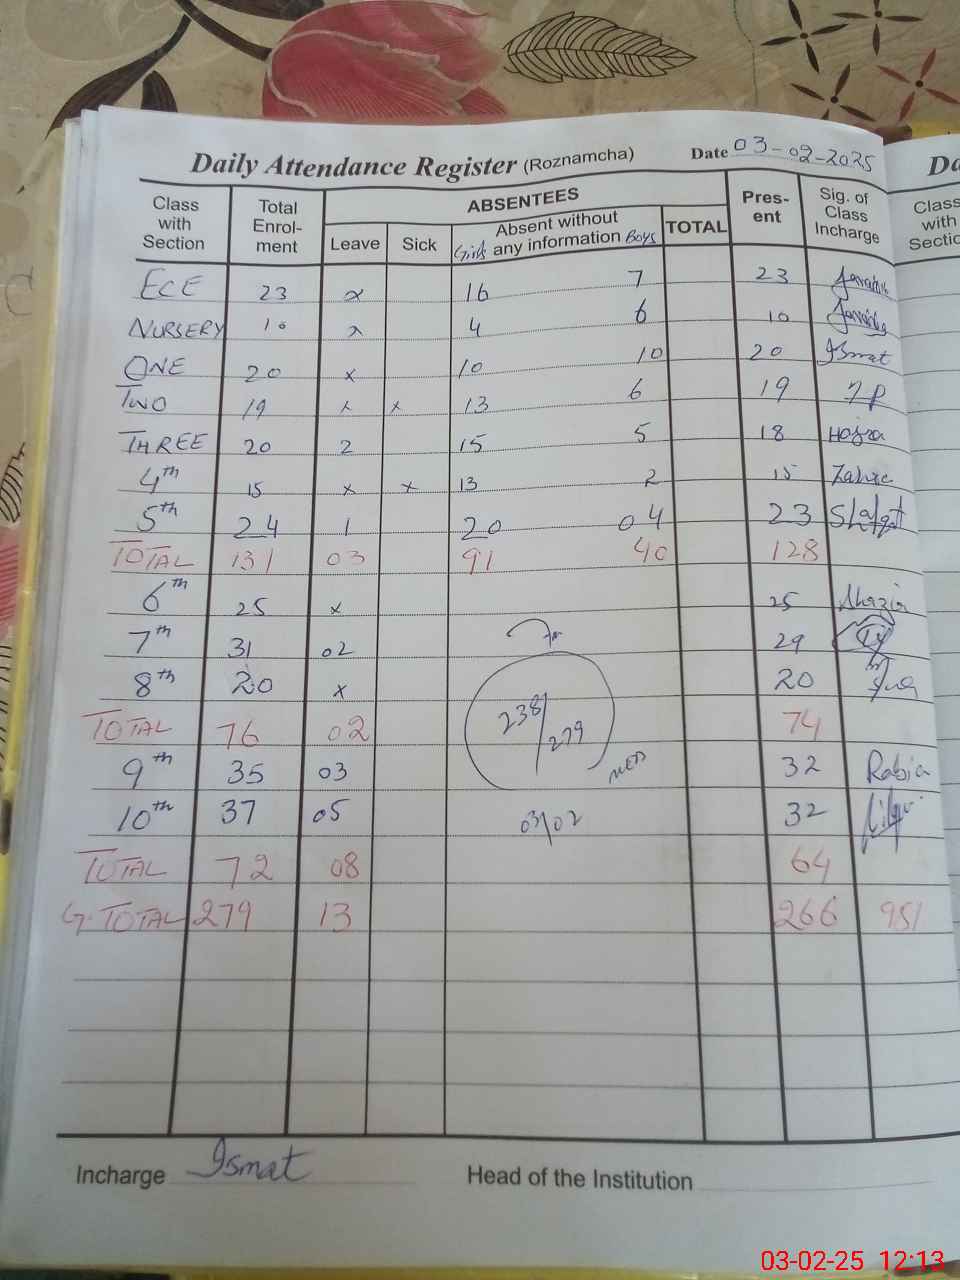 Daily Attendance Register (Roznamcha) Date 03-02-2025
Class with Section Total Enrol-ment ABSENTEES Pres-ent Sig. of Class Incharge
Leave Sick Absent without any information Girls Boys TOTAL
ECE 23 x 16 7 23
NURSERY 10 x 4 6 10
ONE 20 x 10 10 20 Ismat
TWO 19 x x 13 6 19
THREE 20 2 15 5 18 Hajra
4th 15 x x 13 2 15
5th 24 1 20 04 23
TOTAL 131 03 91 40 128
6th 25 x 25
7th 31 02 29
8th 20 x 20
238/279
TOTAL 76 02 74
9th 35 03 32 Rabia
10th 37 05 32
03/02
TOTAL 72 08 64
G.TOTAL 279 13 266 951
Incharge Ismat Head of the Institution
Da
Class with Sectio
03-02-25 12:13